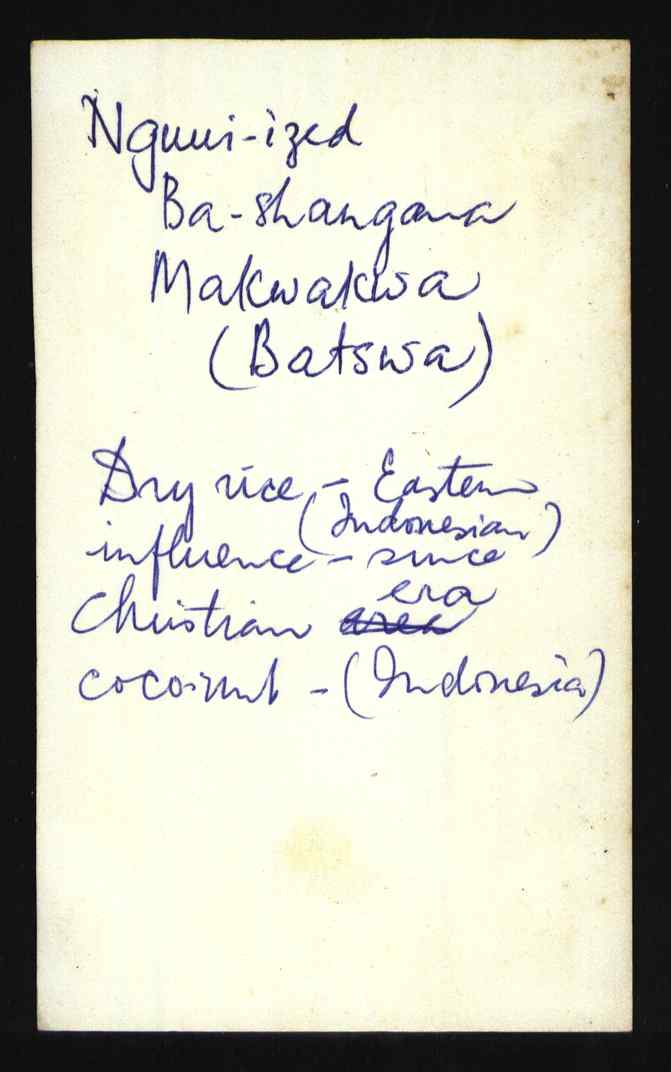 Nguni-ized
Ba-shangana
Makwakwa
(Batswa)
Dry rice - Eastern
(Indonesian)
influence - since
era
Christian area
cocoanut - (Indonesia)